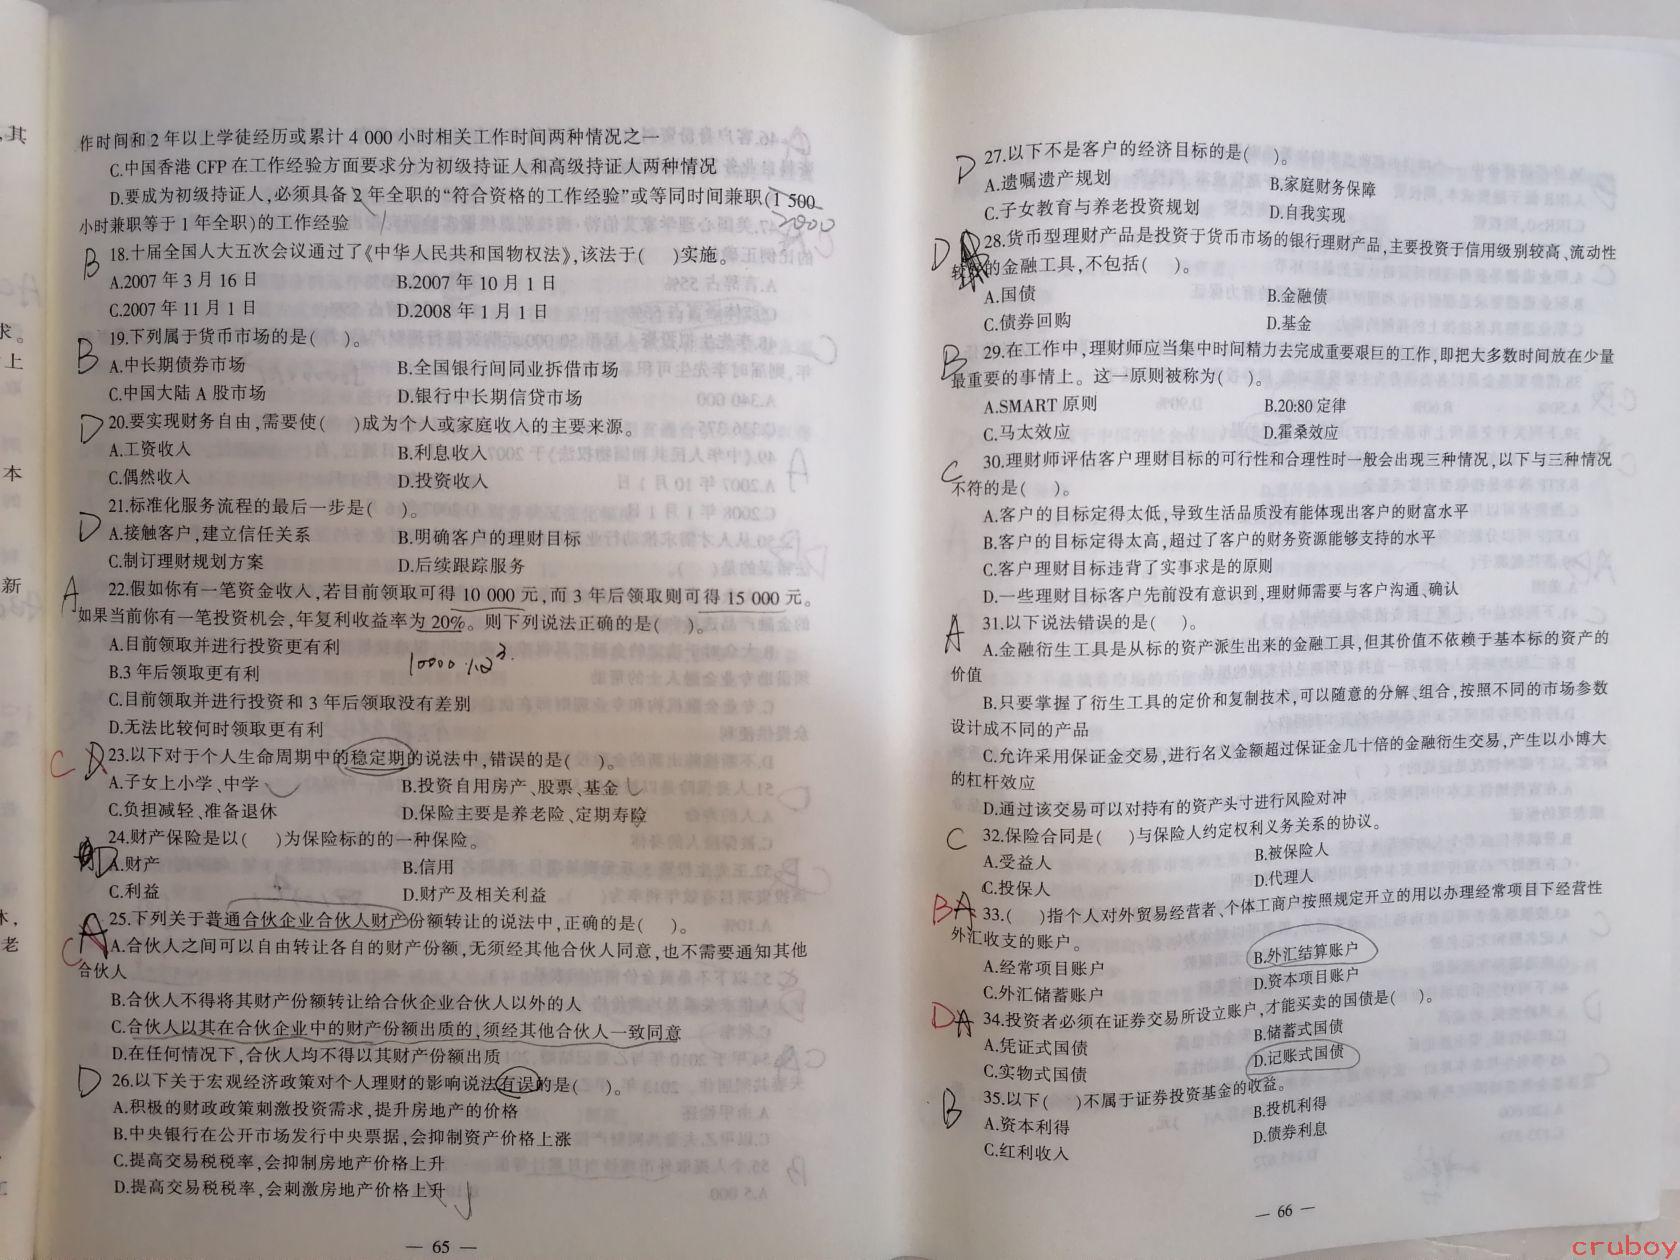 ,其
求。
上
本
新
老
作时间和 2 年以上学徒经历或累计 4 000 小时相关工作时间两种情况之一
C.中国香港 CFP 在工作经验方面要求分为初级持证人和高级持证人两种情况
D.要成为初级持证人,必须具备 2 年全职的“符合资格的工作经验”或等同时间兼职(1 500
1
2000
小时兼职等于 1 年全职)的工作经验
B 18.十届全国人大五次会议通过了《中华人民共和国物权法》,该法于(　　)实施。
A.2007 年 3 月 16 日　B.2007 年 10 月 1 日
C.2007 年 11 月 1 日　D.2008 年 1 月 1 日
B 19.下列属于货币市场的是(　　)。
A.中长期债券市场　B.全国银行间同业拆借市场
C.中国大陆 A 股市场　D.银行中长期信贷市场
D 20.要实现财务自由,需要使(　　)成为个人或家庭收入的主要来源。
A.工资收入　B.利息收入
C.偶然收入　D.投资收入
D 21.标准化服务流程的最后一步是(　　)。
A.接触客户,建立信任关系　B.明确客户的理财目标
C.制订理财规划方案　D.后续跟踪服务
A 22.假如你有一笔资金收入,若目前领取可得 10 000 元,而 3 年后领取则可得 15 000 元。
如果当前你有一笔投资机会,年复利收益率为 20%。则下列说法正确的是(　　)。
A.目前领取并进行投资更有利
B.3 年后领取更有利
C.目前领取并进行投资和 3 年后领取没有差别
D.无法比较何时领取更有利
C 23.以下对于个人生命周期中的稳定期的说法中,错误的是(　　)。
A.子女上小学、中学　B.投资自用房产、股票、基金
C.负担减轻、准备退休　D.保险主要是养老险、定期寿险
D 24.财产保险是以(　　)为保险标的的一种保险。
A.财产　B.信用
C.利益　D.财产及相关利益
C A 25.下列关于普通合伙企业合伙人财产份额转让的说法中,正确的是(　　)。
A.合伙人之间可以自由转让各自的财产份额,无须经其他合伙人同意,也不需要通知其他
合伙人
B.合伙人不得将其财产份额转让给合伙企业合伙人以外的人
C.合伙人以其在合伙企业中的财产份额出质的,须经其他合伙人一致同意
D.在任何情况下,合伙人均不得以其财产份额出质
D 26.以下关于宏观经济政策对个人理财的影响说法有误的是(　　)。
A.积极的财政政策刺激投资需求,提升房地产的价格
B.中央银行在公开市场发行中央票据,会抑制资产价格上涨
C.提高交易税税率,会抑制房地产价格上升
D.提高交易税税率,会刺激房地产价格上升
— 65 —
D 27.以下不是客户的经济目标的是(　　)。
A.遗嘱遗产规划　B.家庭财务保障
C.子女教育与养老投资规划　D.自我实现
D 28.货币型理财产品是投资于货币市场的银行理财产品,主要投资于信用级别较高、流动性
较 的金融工具,不包括(　　)。
A.国债　B.金融债
C.债券回购　D.基金
B 29.在工作中,理财师应当集中时间精力去完成重要艰巨的工作,即把大多数时间放在少量
最重要的事情上。这一原则被称为(　　)。
A.SMART 原则　B.20:80 定律
C.马太效应　D.霍桑效应
C 30.理财师评估客户理财目标的可行性和合理性时一般会出现三种情况,以下与三种情况
不符的是(　　)。
A.客户的目标定得太低,导致生活品质没有能体现出客户的财富水平
B.客户的目标定得太高,超过了客户的财务资源能够支持的水平
C.客户理财目标违背了实事求是的原则
D.一些理财目标客户先前没有意识到,理财师需要与客户沟通、确认
A 31.以下说法错误的是(　　)。
A.金融衍生工具是从标的资产派生出来的金融工具,但其价值不依赖于基本标的资产的
价值
B.只要掌握了衍生工具的定价和复制技术,可以随意的分解、组合,按照不同的市场参数
设计成不同的产品
C.允许采用保证金交易,进行名义金额超过保证金几十倍的金融衍生交易,产生以小博大
的杠杆效应
D.通过该交易可以对持有的资产头寸进行风险对冲
C 32.保险合同是(　　)与保险人约定权利义务关系的协议。
A.受益人　B.被保险人
C.投保人　D.代理人
B A 33.(　　)指个人对外贸易经营者、个体工商户按照规定开立的用以办理经常项目下经营性
外汇收支的账户。
A.经常项目账户　B.外汇结算账户
C.外汇储蓄账户　D.资本项目账户
D A 34.投资者必须在证券交易所设立账户,才能买卖的国债是(　　)。
A.凭证式国债　B.储蓄式国债
C.实物式国债　D.记账式国债
B 35.以下(　　)不属于证券投资基金的收益。
A.资本利得　B.投机利得
C.红利收入　D.债券利息
— 66 —
cruboy